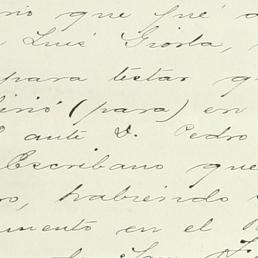 rio que fué a
Luis Giorla,
para testar q
irió (para) en
ante D. Pedro
Escribano que
ro, habiendo
mento en el